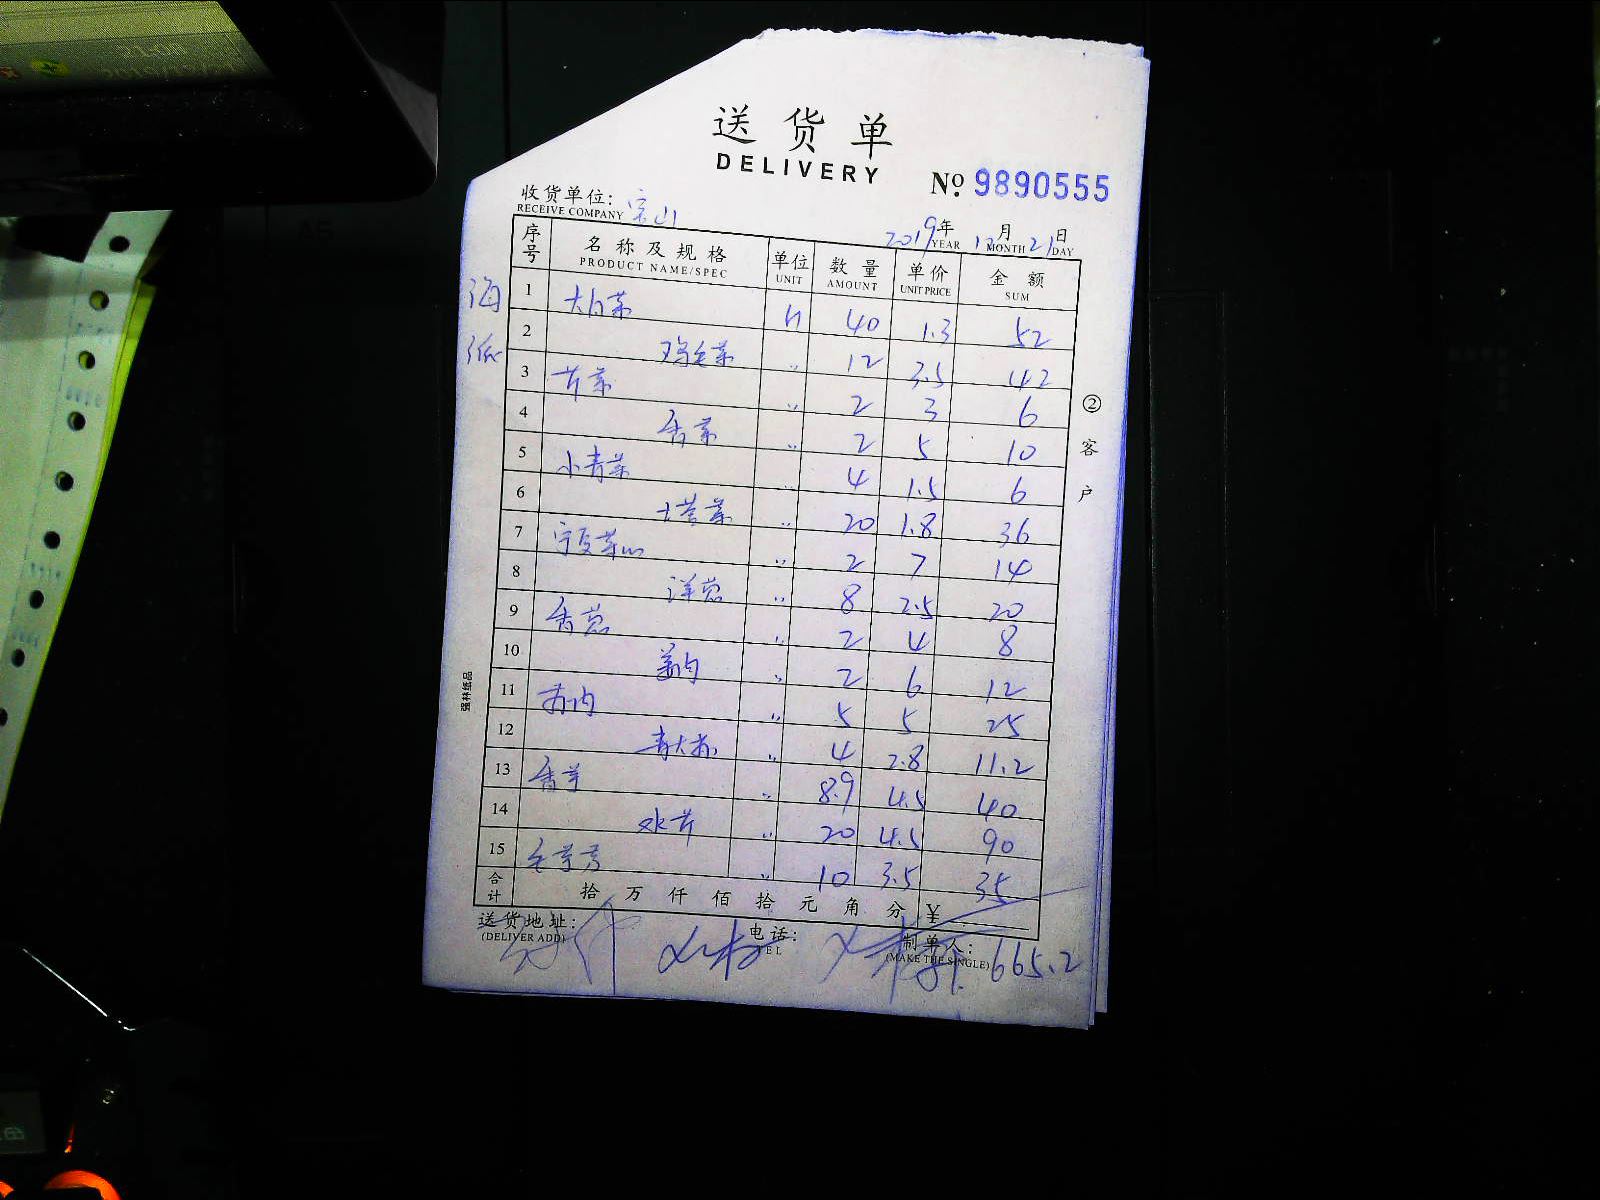 送货单
DELIVERY
№ 9890555
收货单位: 宝山
RECEIVE COMPANY
2019年 12月 21日
YEAR MONTH DAY
序号 名称及规格 单位 数量 单价 金额
PRODUCT NAME/SPEC UNIT AMOUNT UNIT PRICE SUM
1 大白菜 斤 40 1.3 52
2 鸡毛菜 〃 12 3.5 42
3 芹菜 〃 2 3 6
4 香菜 〃 2 5 10
5 小青菜 〃 4 1.5 6
6 塔菜 〃 20 1.8 36
7 宁夏菜心 〃 2 7 14
8 洋葱 〃 8 2.5 20
9 香葱 〃 2 4 8
10 姜肉 〃 2 6 12
11 〃 5 5 25
12 青大椒 〃 4 2.8 11.2
13 香芋 〃 8.9 4.5 40
14 水芹 〃 20 4.5 90
15 毛芋艿 〃 10 3.5 35
合计 拾 万 仟 佰 拾 元 角 分 ¥
送货地址: 电话: 制单人:
(DELIVER ADD) TEL (MAKE THE SINGLE) 665.2
②客户
强林纸品